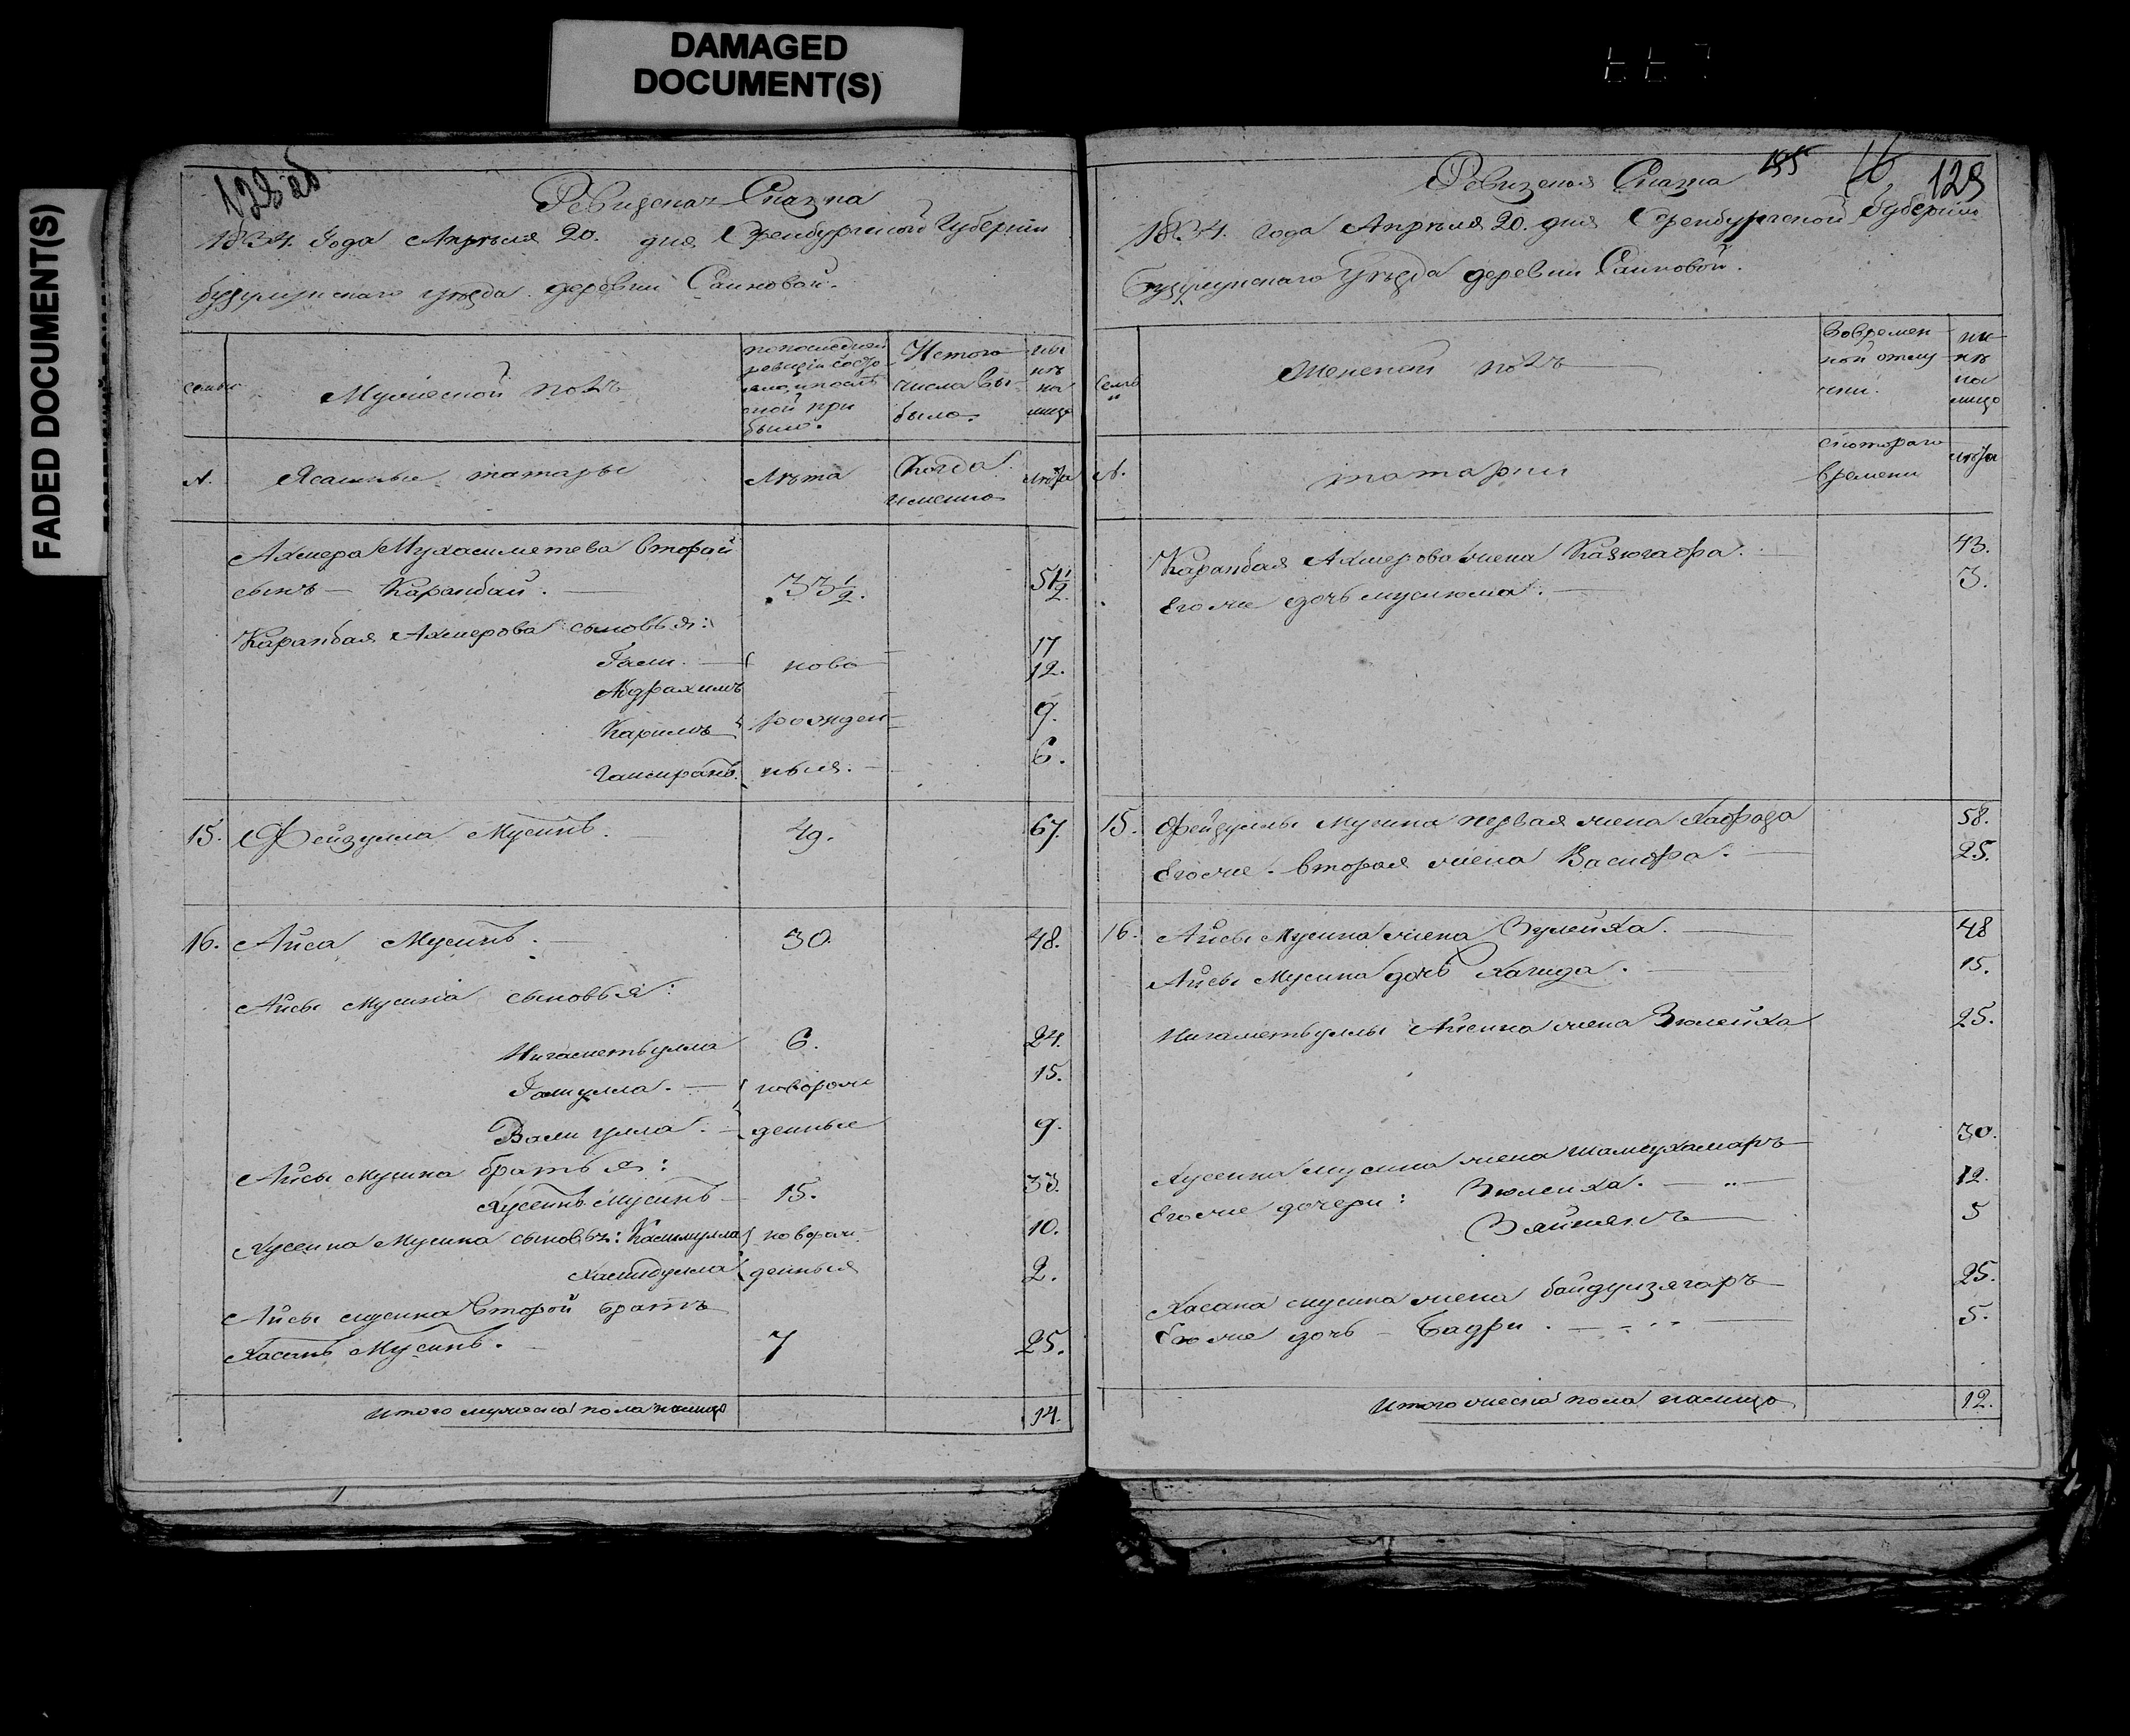 DAMAGED
DOCUMENT(S)
FADED DOCUMENT(S)
128 об
Ревизская Сказка
1834. Года Апреля 20. дня Оренбургской Губернии
бугульминскаго уѣзда деревни Саиковой.
семьи
Мужеской полъ
по последней ревизіи состояло и после оной прибыло.
Изтого числа выбыло.
ны нѣ на лицо
№.
Ясашные татары
Лѣта
Когда имянно
лѣта
Ахмера Мухаметева второй
сынъ — Карандай. — 33½. 51½.
Карандая Ахмерова сыновья:
Гали. — ново 17
Абдрахимъ 12.
Каримъ рожден 9.
ные. — 6.
15. Фейзулла Мусинъ. 49. 67.
16. Айса Мусинъ. — 30. 48.
Айсы Мусина сыновья:
Нигаметьулла 6. 24.
Гатулла. — новорож 15.
Вали улла. — денные 9.
Айсы Мусина братья:
Хусеинъ Мусинъ — 15. 33.
Хусеина Мусина сыновья: Касимулла новорож 10.
Хамидулла денныя 2.
Айсы мусина второй братъ
Хасанъ Мусинъ. 7 25.
Итого мужеска пола налицо 14.
155 16 129
Ревизская Сказка
1834. года Апреля 20. дня Оренбургской Губернии
Бугульминскаго Уѣзда деревни Саиковой.
Семьи
Женской полъ
Во временной отлучки.
ны нѣ на лицо
№.
татарки
с котораго времени
лѣта
Карандая Ахмерова жена 43.
Его же дочь муслюма. — 3.
15. Фейзуллы Мусина первая жена 58.
Его же. вторая жена Васифа. — 25.
16. Айсы Мусина жена Зулейха. — 48
Айсы Мусина дочь Хагида. — 15.
Нигаметьуллы Айсина жена Зюлейха 25.
Хусеина мусина жена Шамсукамаръ 30.
Его же дочери: Зюлейха. — 12.
Зайнапъ — 5
Хасана мусина жена 25.
Его же дочь — Бадри. — 5.
Итого женска пола налицо 12.